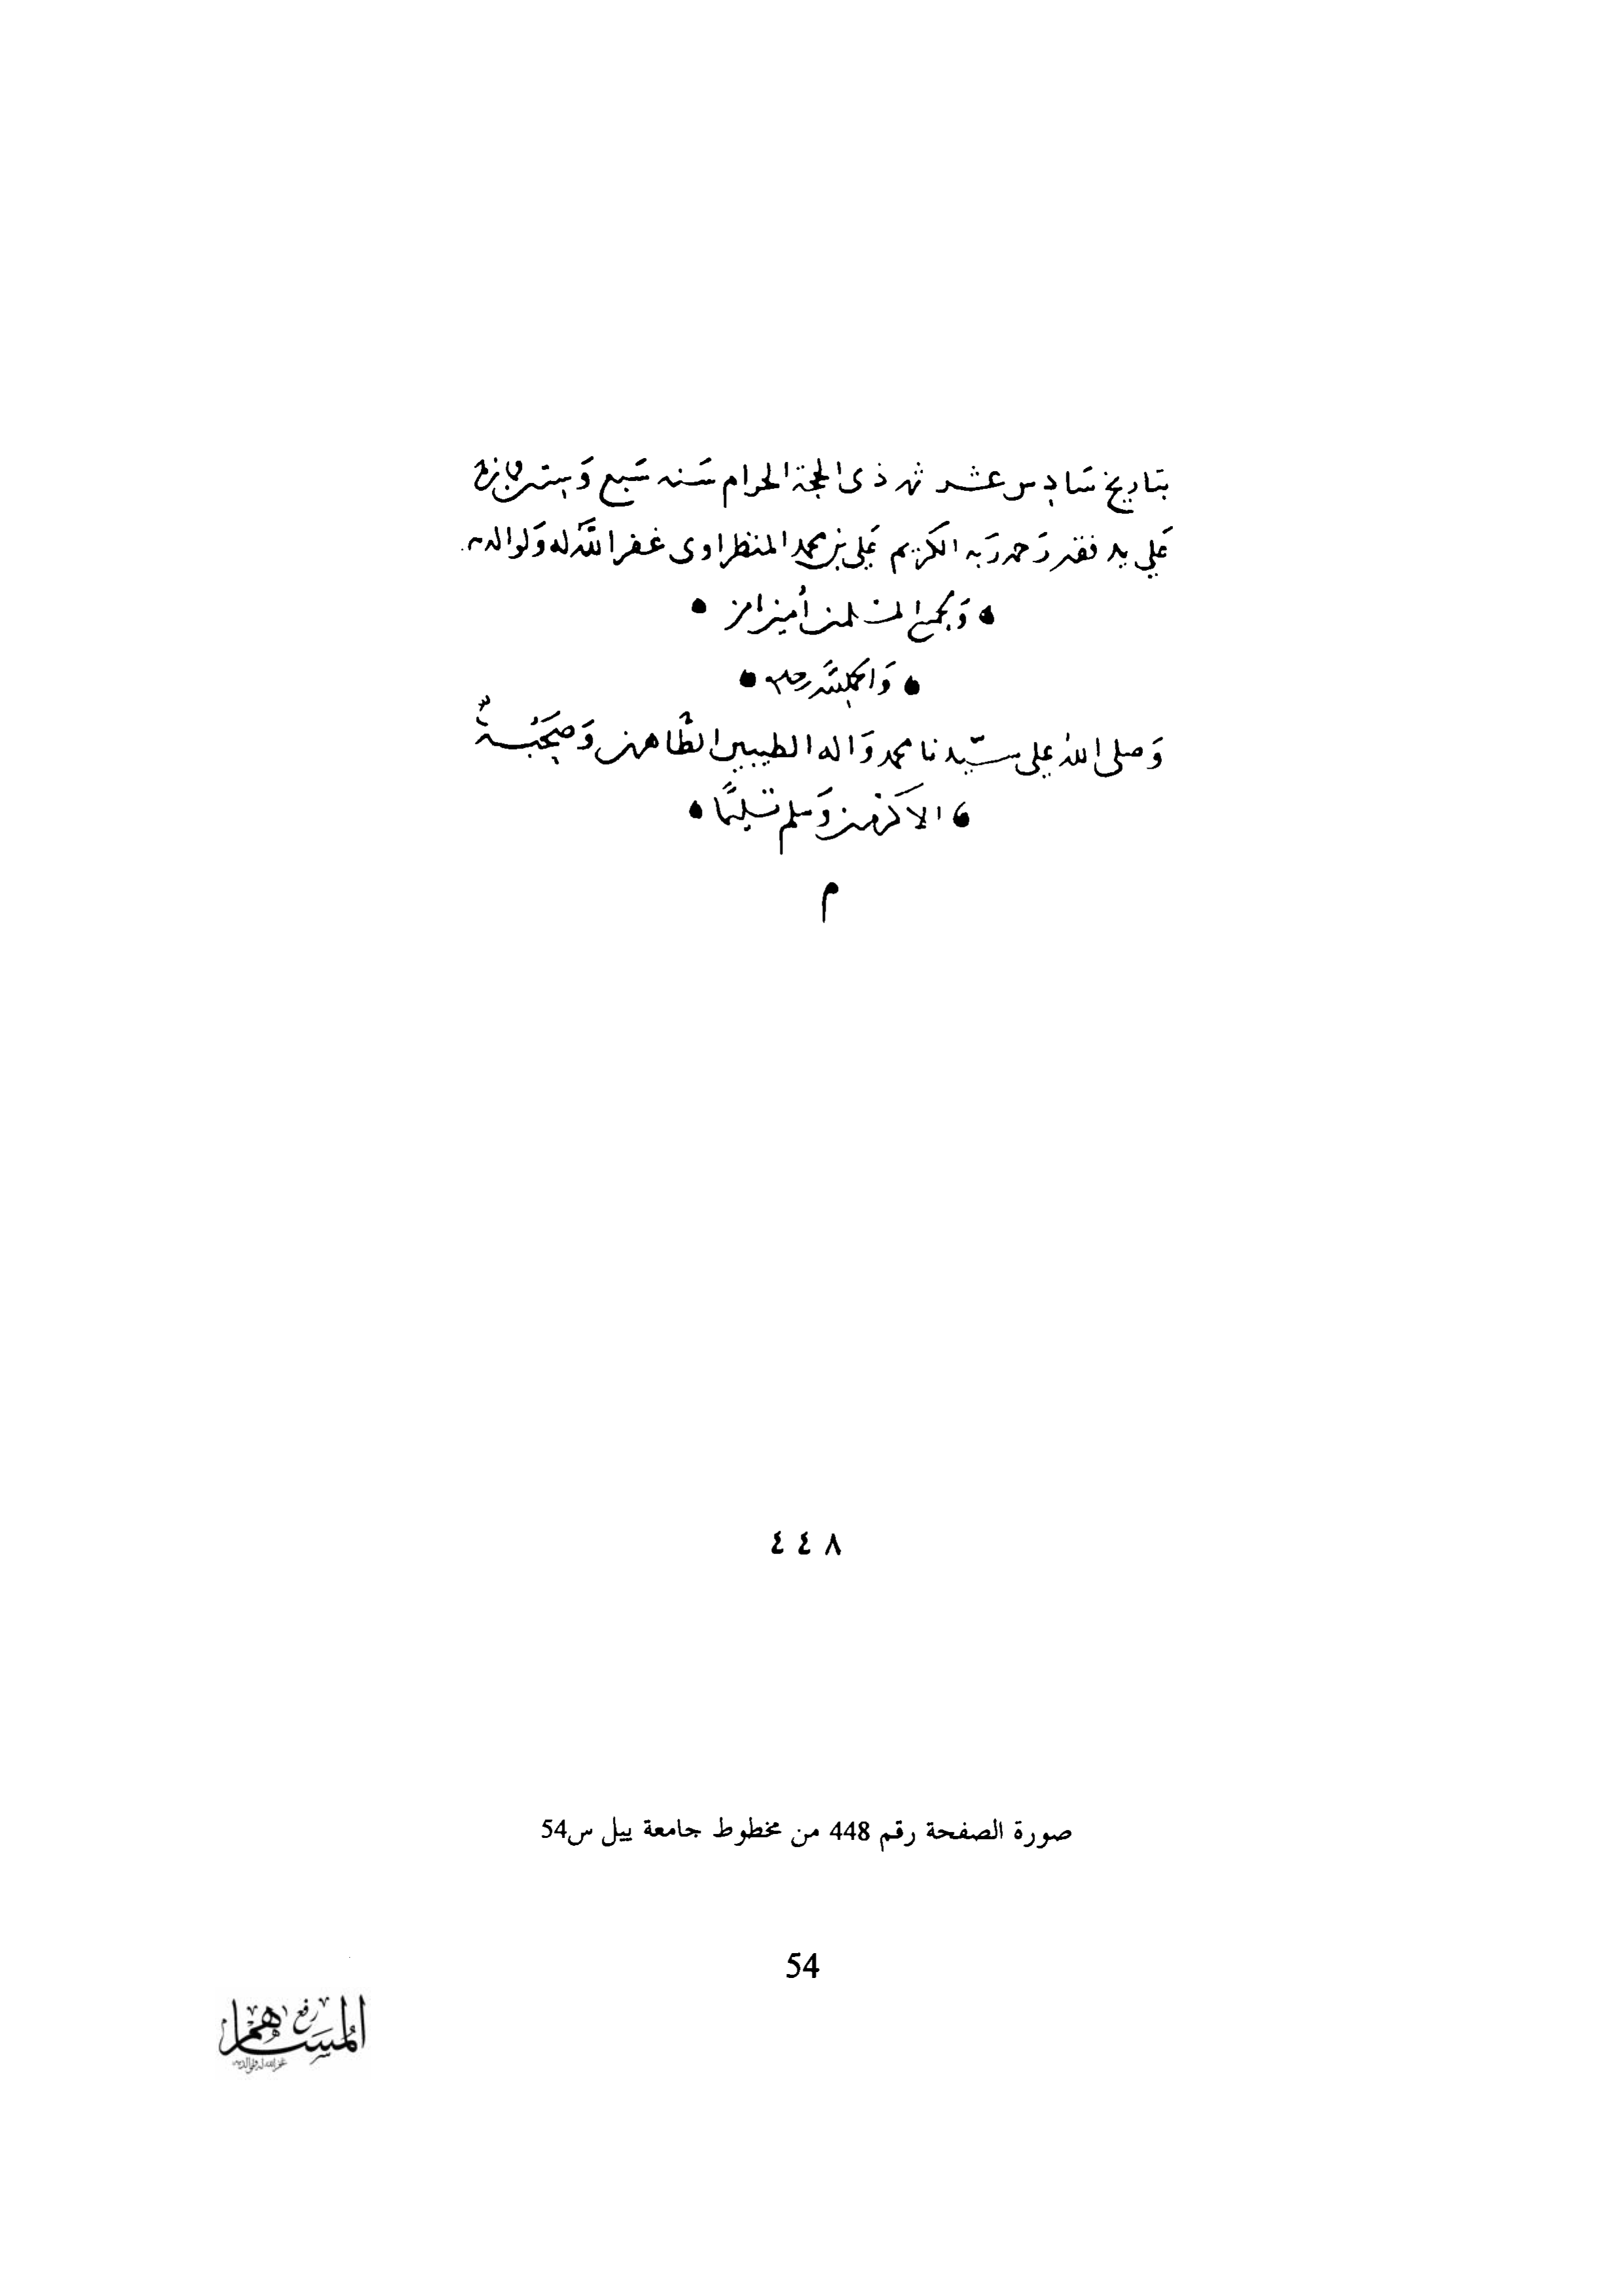 بتاريخ سَادِس عشر شهر ذى الحجة الحرام سَنه سَبع وَستين
عَلي يد فقير رَحمه رَبه الكريم عَلي بن محمد المنظراوى غفر اللَّه له وَلوالديه
وَلجميع المسلمين أمين امين
وَالحمد لله وحده
وَصلى الله على سيّدنا محمد وَاله الطيبين الطَّاهرين وَصحَبه
الاكرَمين وَسلم تسليمًا
م
٤٤٨
صورة الصفحة رقم 448 من مخطوط جامعة ييل س54
54
المساهم
رفع
غفر الله له ولوالديه